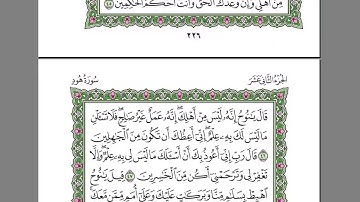 مِنْ أَهْلِي وَإِنَّ وَعْدَكَ الْحَقُّ وَأَنتَ أَحْكَمُ الْحَاكِمِينَ ٤٥
٢٢٦
الجزء الثاني عشر
سورة هود
قَالَ يَٰنُوحُ إِنَّهُۥ لَيْسَ مِنْ أَهْلِكَ إِنَّهُۥ عَمَلٌ غَيْرُ صَٰلِحٍ فَلَا تَسْـَٔلْنِ
مَا لَيْسَ لَكَ بِهِۦ عِلْمٌ إِنِّىٓ أَعِظُكَ أَن تَكُونَ مِنَ ٱلْجَٰهِلِينَ
٤٦ قَالَ رَبِّ إِنِّىٓ أَعُوذُ بِكَ أَنْ أَسْـَٔلَكَ مَا لَيْسَ لِى بِهِۦ عِلْمٌ وَإِلَّا
تَغْفِرْ لِى وَتَرْحَمْنِىٓ أَكُن مِّنَ ٱلْخَٰسِرِينَ ٤٧ قِيلَ يَٰنُوحُ
ٱهْبِطْ بِسَلَٰمٍ مِّنَّا وَبَرَكَٰتٍ عَلَيْكَ وَعَلَىٰٓ أُمَمٍ مِّمَّن مَّعَكَ